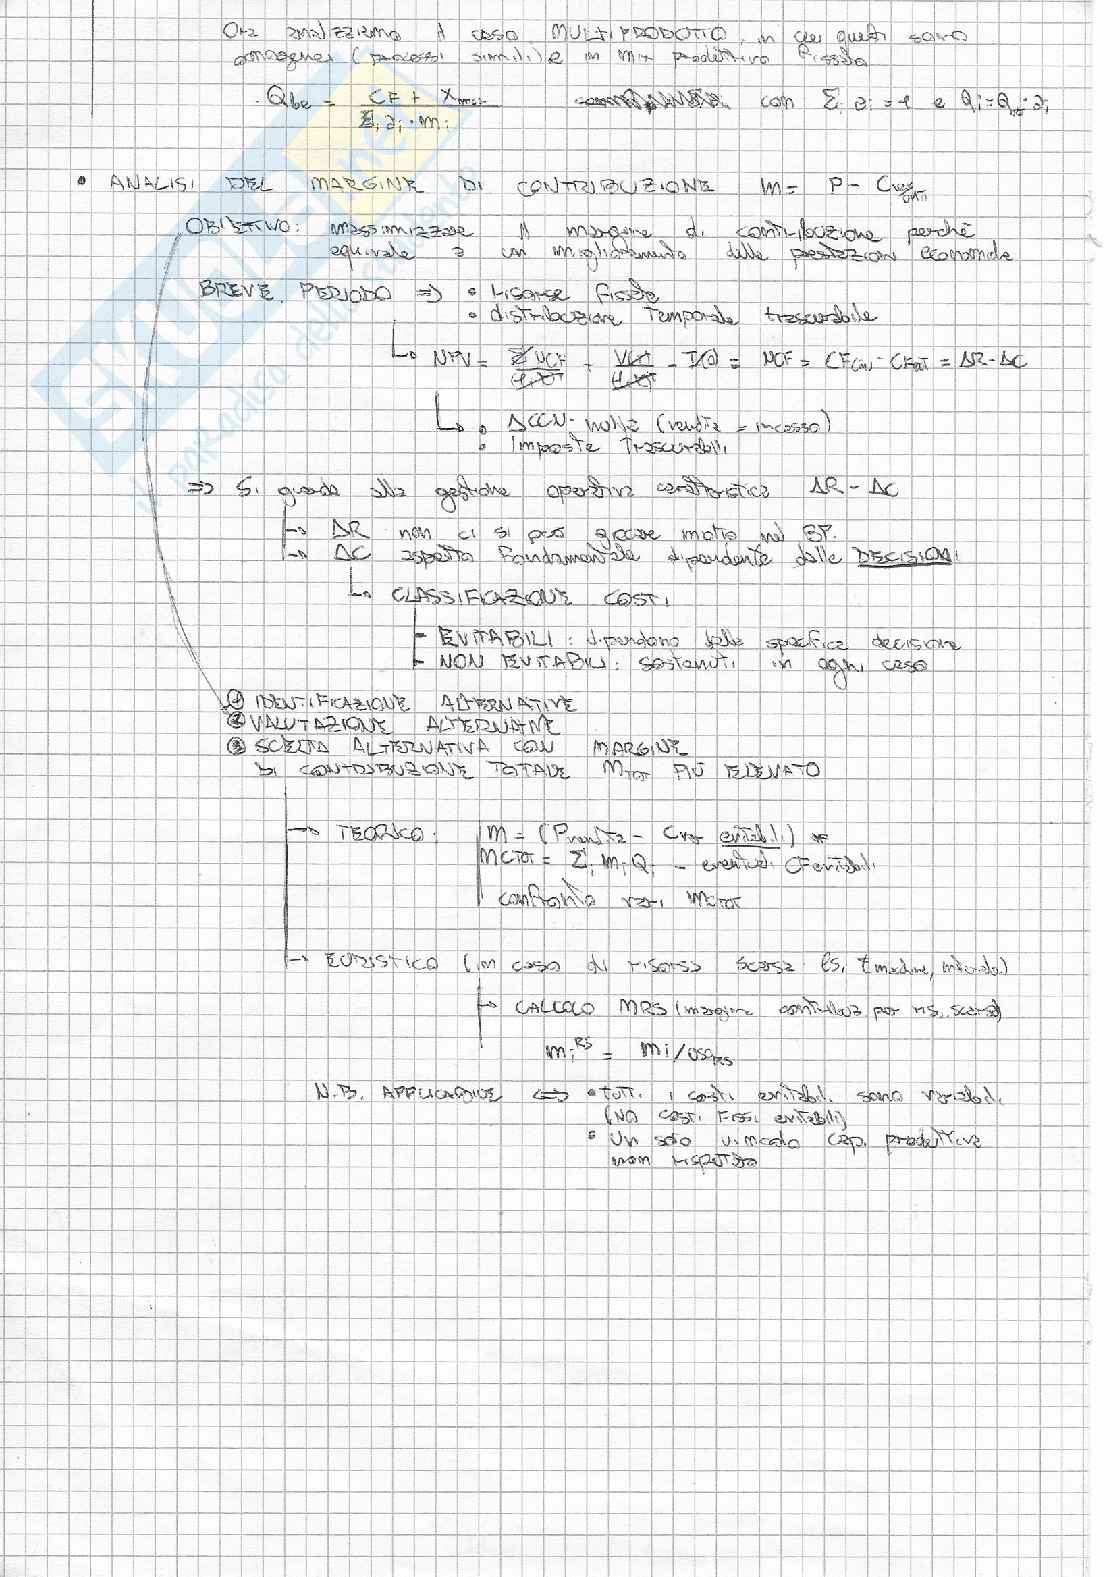 Ora analizziamo il caso MULTIPRODOTTO, in cui questi sono
omogenei (processi simili) e in mix produttivo fissato
Qbe = CF + X / Σi ai · mi con Σi ai = 1 e Qi = Q · ai
• ANALISI DEL MARGINE DI CONTRIBUZIONE m = P - Cvar
OBIETTIVO: massimizzare il margine di contribuzione perché
equivale a un miglioramento delle prestazioni economiche
BREVE PERIODO => • risorse fissate
• distribuzione temporale trascurabile
NPV = Σ NCF + V(T) - I(0) = NCF = CF(in) - CFout = ΔR - ΔC
• ΔCCN nullo (vendite = incasso)
• Imposte trascurabili
=> Si guarda alla gestione operativa caratteristica ΔR - ΔC
→ ΔR non ci si può giocare molto nel BP.
→ ΔC aspetto fondamentale dipendente dalle DECISIONI
CLASSIFICAZIONE COSTI
- EVITABILI: dipendono dalla specifica decisione
- NON EVITABILI: sostenuti in ogni caso
① IDENTIFICAZIONE ALTERNATIVE
② VALUTAZIONE ALTERNATIVE
③ SCELTA ALTERNATIVA CON MARGINE
DI CONTRIBUZIONE TOTALE MTOT PIÙ ELEVATO
→ TEORICO: m = (Pvendita - Cvar evitabili)
MCTOT = Σi mi Qi - eventuali CF evitabili
confronto vari MCTOT
→ EURISTICO (in caso di risorsa scarsa es. t macchine, materiale)
→ CALCOLO MRS (margine contribuz per ris. scarsa)
mi RS = mi/usoRS
N.B. APPLICABILE <=> • tutti i costi evitabili sono variabili
(NO costi fissi evitabili)
• Un solo vincolo cap. produttiva
non rispettato
EXULES.net
il PARADISO dello studente